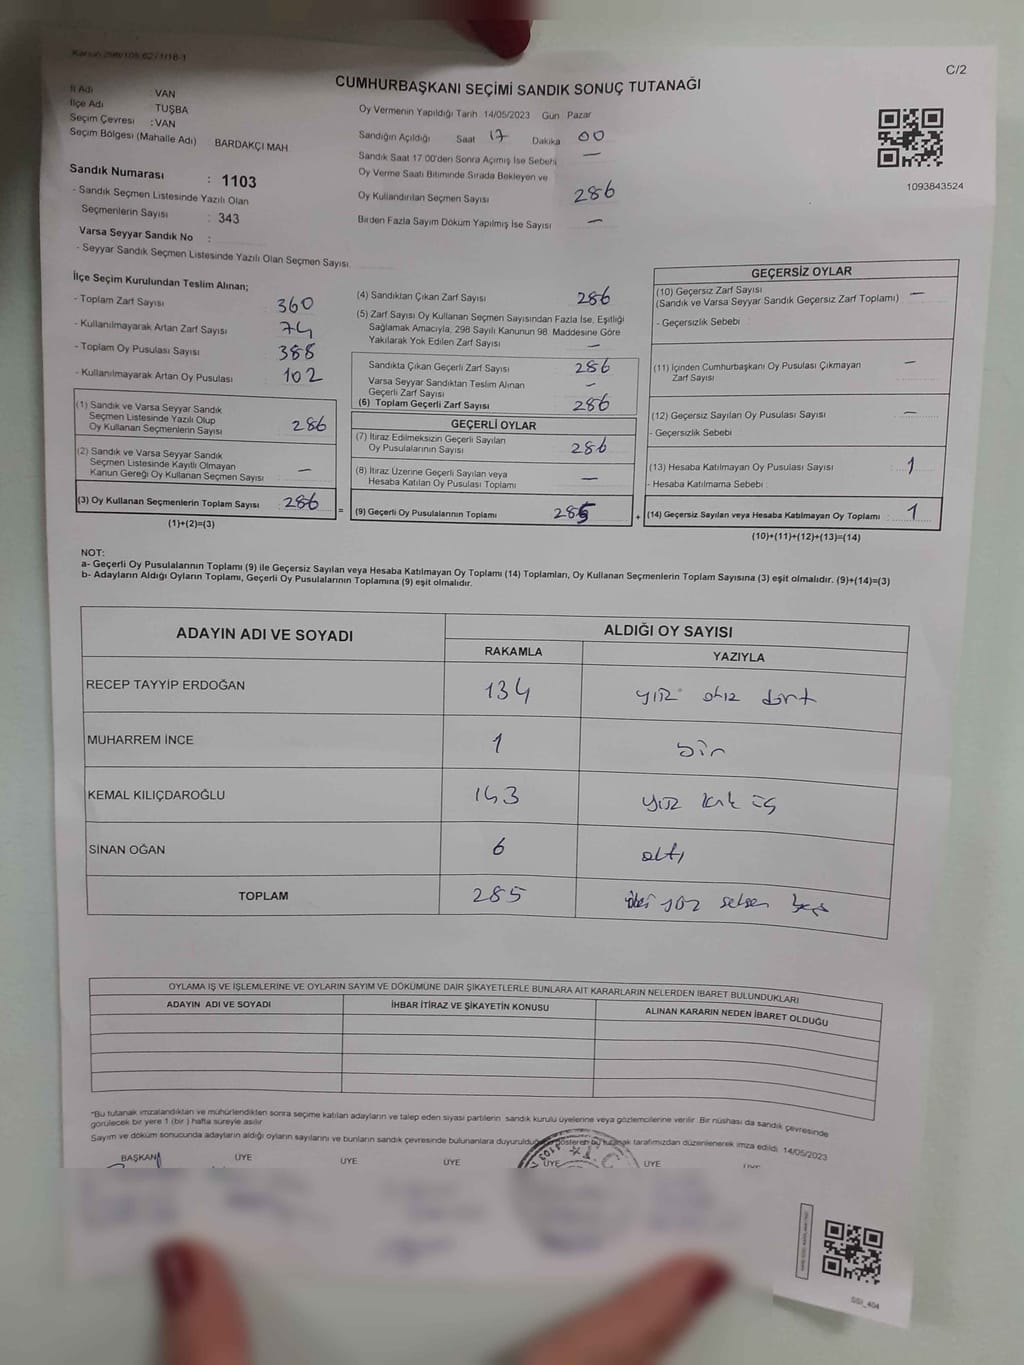 Kanun 298/105,62 / 1/18-1
C/2
CUMHURBAŞKANI SEÇİMİ SANDIK SONUÇ TUTANAĞI
İl Adı : VAN
İlçe Adı TUŞBA
Seçim Çevresi : VAN
Seçim Bölgesi (Mahalle Adı) BARDAKÇI MAH.
Sandık Numarası : 1103
- Sandık Seçmen Listesinde Yazılı Olan
Seçmenlerin Sayısı : 343
Varsa Seyyar Sandık No :
- Seyyar Sandık Seçmen Listesinde Yazılı Olan Seçmen Sayısı
Oy Vermenin Yapıldığı Tarih 14/05/2023 Gün Pazar
Sandığın Açıldığı Saat 17 Dakika 00
Sandık Saat 17.00'den Sonra Açılmış İse Sebebi —
Oy Verme Saati Bitiminde Sırada Bekleyen ve
Oy Kullandırılan Seçmen Sayısı 286
Birden Fazla Sayım Döküm Yapılmış İse Sayısı —
1093843524
İlçe Seçim Kurulundan Teslim Alınan;
- Toplam Zarf Sayısı 360
- Kullanılmayarak Artan Zarf Sayısı 74
- Toplam Oy Pusulası Sayısı 388
- Kullanılmayarak Artan Oy Pusulası 102
(1) Sandık ve Varsa Seyyar Sandık
Seçmen Listesinde Yazılı Olup
Oy Kullanan Seçmenlerin Sayısı 286
(2) Sandık ve Varsa Seyyar Sandık
Seçmen Listesinde Kayıtlı Olmayan
Kanun Gereği Oy Kullanan Seçmen Sayısı —
(3) Oy Kullanan Seçmenlerin Toplam Sayısı 286
(1)+(2)=(3)
(4) Sandıktan Çıkan Zarf Sayısı 286
(5) Zarf Sayısı Oy Kullanan Seçmen Sayısından Fazla İse, Eşitliği
Sağlamak Amacıyla, 298 Sayılı Kanunun 98. Maddesine Göre
Yakılarak Yok Edilen Zarf Sayısı —
Sandıkta Çıkan Geçerli Zarf Sayısı 286
Varsa Seyyar Sandıktan Teslim Alınan
Geçerli Zarf Sayısı —
(6) Toplam Geçerli Zarf Sayısı 286
GEÇERLİ OYLAR
(7) İtiraz Edilmeksizin Geçerli Sayılan
Oy Pusulalarının Sayısı 286
(8) İtiraz Üzerine Geçerli Sayılan veya
Hesaba Katılan Oy Pusulası Toplamı —
= (9) Geçerli Oy Pusulalarının Toplamı 285
GEÇERSİZ OYLAR
(10) Geçersiz Zarf Sayısı —
(Sandık ve Varsa Seyyar Sandık Geçersiz Zarf Toplamı)
- Geçersizlik Sebebi :
(11) İçinden Cumhurbaşkanı Oy Pusulası Çıkmayan —
Zarf Sayısı
(12) Geçersiz Sayılan Oy Pusulası Sayısı —
- Geçersizlik Sebebi
(13) Hesaba Katılmayan Oy Pusulası Sayısı 1
- Hesaba Katılmama Sebebi :
+ (14) Geçersiz Sayılan veya Hesaba Katılmayan Oy Toplamı 1
(10)+(11)+(12)+(13)=(14)
NOT:
a- Geçerli Oy Pusulalarının Toplamı (9) ile Geçersiz Sayılan veya Hesaba Katılmayan Oy Toplamı (14) Toplamları, Oy Kullanan Seçmenlerin Toplam Sayısına (3) eşit olmalıdır. (9)+(14)=(3)
b- Adayların Aldığı Oyların Toplamı, Geçerli Oy Pusulalarının Toplamına (9) eşit olmalıdır.
ADAYIN ADI VE SOYADI ALDIĞI OY SAYISI
RAKAMLA YAZIYLA
RECEP TAYYİP ERDOĞAN 134 yüz otuz dört
MUHARREM İNCE 1 bir
KEMAL KILIÇDAROĞLU 143 yüz kırk üç
SİNAN OĞAN 6 altı
TOPLAM 285 iki yüz seksen beş
OYLAMA İŞ VE İŞLEMLERİNE VE OYLARIN SAYIM VE DÖKÜMÜNE DAİR ŞİKAYETLERLE BUNLARA AİT KARARLARIN NELERDEN İBARET BULUNDUKLARI
ADAYIN ADI VE SOYADI İHBAR İTİRAZ VE ŞİKAYETİN KONUSU ALINAN KARARIN NEDEN İBARET OLDUĞU
*Bu tutanak imzalandıktan ve mühürlendikten sonra seçime katılan adayların ve talep eden siyasi partilerin sandık kurulu üyelerine veya gözlemcilerine verilir. Bir nüshası da sandık çevresinde
görülecek bir yere 1 (bir ) hafta süreyle asılır.
Sayım ve döküm sonucunda adayların aldığı oyların sayılarını ve bunların sandık çevresinde bulunanlara duyurulduğunu gösteren bu tutanak tarafımızdan düzenlenerek imza edildi. 14/05/2023
BAŞKAN ÜYE ÜYE ÜYE ÜYE ÜYE
1103
SSI_404